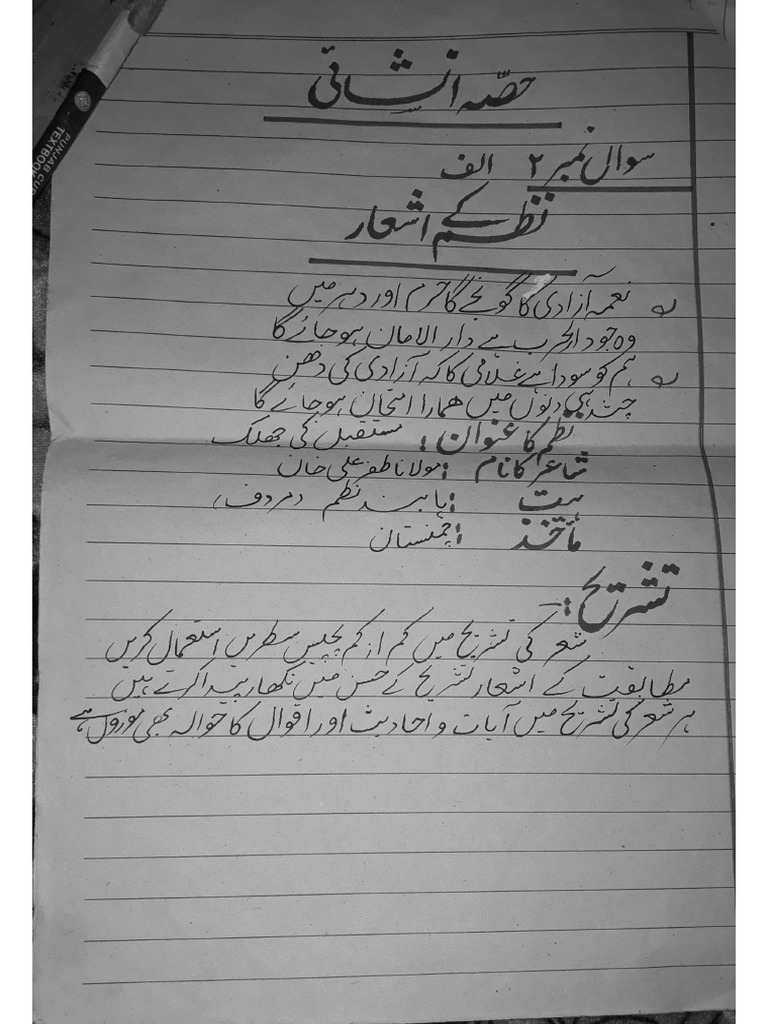 حصّہ انشائی
سوال نمبر ۲ الف
نظم کے اشعار
نغمہ آزادی کا گونجے گا حرم اور دہر میں
وہ جو دارالحرب ہے دار الامان ہو جائے گا
ہم کو سودا ہے غلامی کا کہ آزادی کی دھن
چند ہی دنوں میں ہمارا امتحان ہو جائے گا
نظم کا عنوان : مستقبل کی جھلک
شاعر کا نام : مولانا ظفر علی خان
ہیت : پابند نظم (مردف)
مآخذ : چمنستان
تشریح :-
شعر کی تشریح میں کم از کم پچیس سطریں استعمال کریں
مطابقت کے اشعار تشریح کے حسن میں نکھار پیدا کرتے ہیں
ہر شعر کی تشریح میں آیات و احادیث اور اقوال کا حوالہ بھی موزوں ہے
PUNJAB CUR
TEXTBOOK